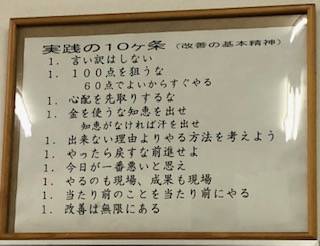 実践の10ヶ条 (改善の基本精神)
1. 言い訳はしない
1. 100点を狙うな
60点でよいからすぐやる
1. 心配を先取りするな
1. 金を使うな知恵を出せ
知恵がなければ汗を出せ
1. 出来ない理由よりやる方法を考えよう
1. やったら戻すな前進せよ
1. 今日が一番悪いと思え
1. やるのも現場、成果も現場
1. 当たり前のことを当たり前にやる
1. 改善は無限にある